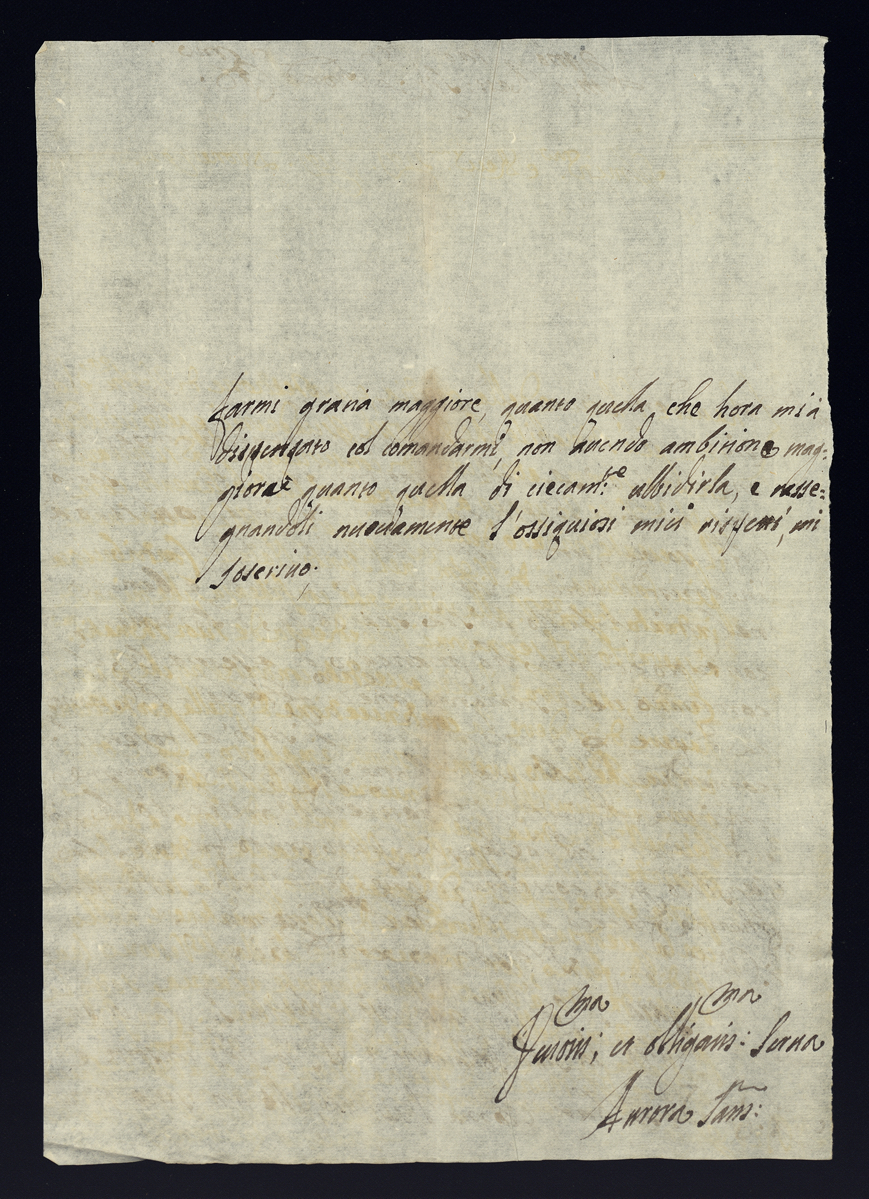 farmi gratia maggiore, quanto quella che hora mi à
dispenzato col comandarmi, non avendo ambitione mag=
giorae quanto quella di ciecam:te ubbidirla, e rasse=
gnandoli nuovamente l'ossiquiosi miei rispetti, mi
soscrivo;
Devotis:ma, et obligatis:ma Serva
Aurora Sans: